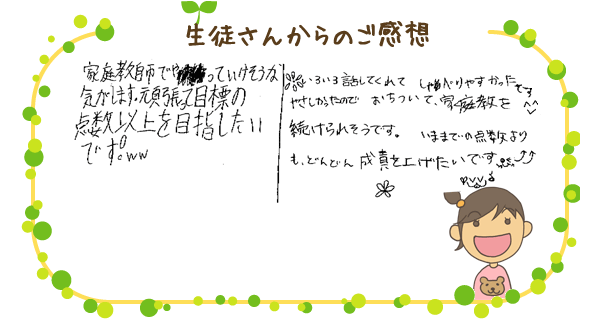 生徒さんからのご感想
家庭教師でやっていけそうな
気がします。頑張って目標の
点数以上を目指したい
です!ww
いろいろ話してくれて しゃべりやすかったです
やさしかったので おちついて、家庭教を
続けられそうです。 いままでの点数より
も、どんどん 成績を上げたいです